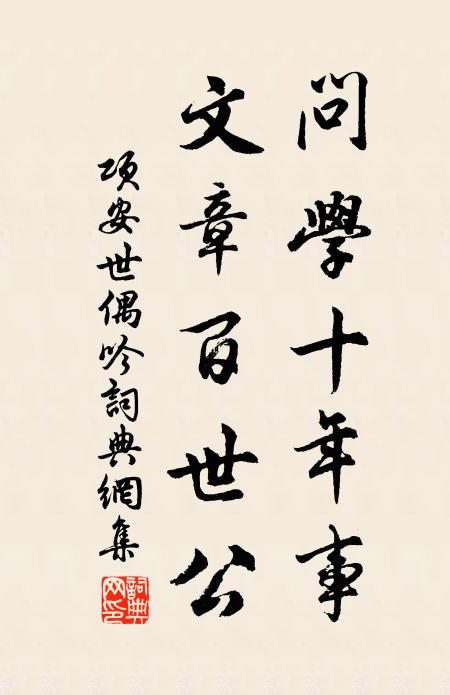 問學十年事
文章百世公
項安世偶吟詞典網集
詞典網印